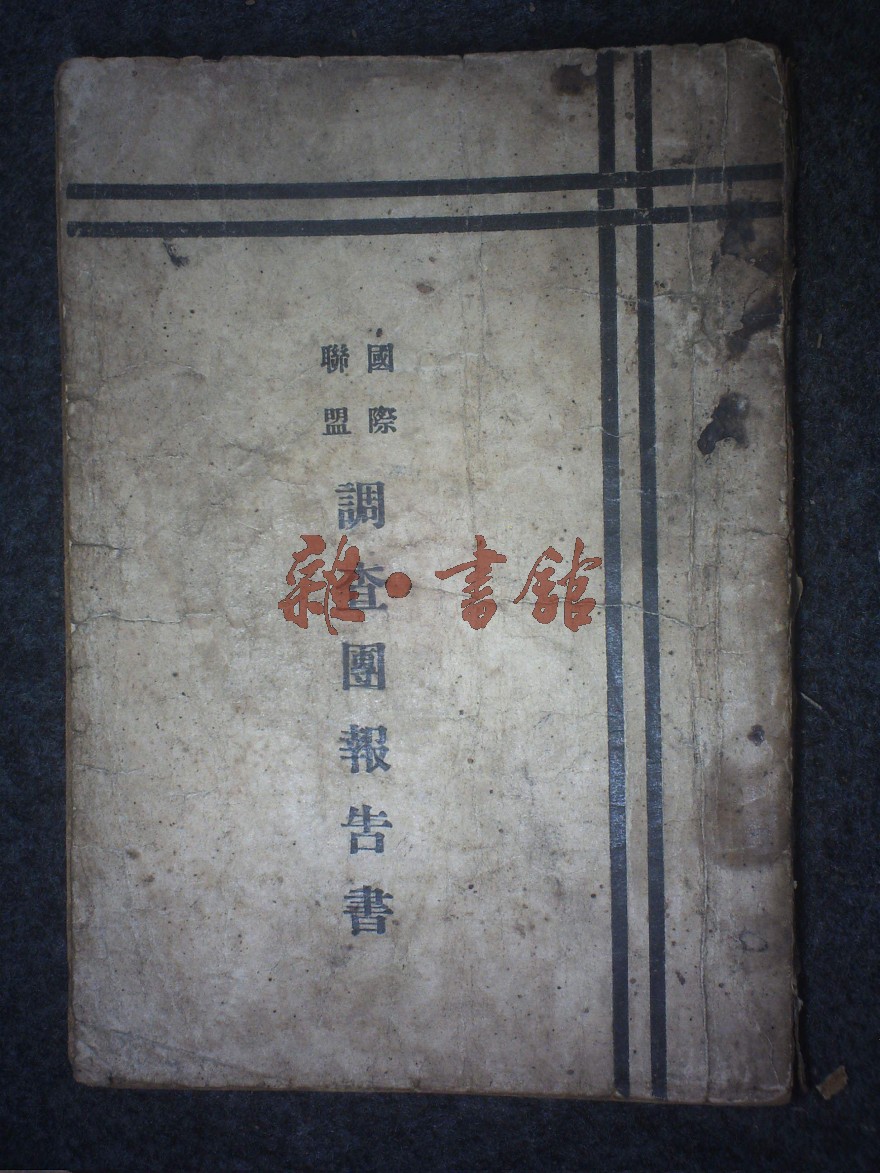 國際
聯盟
調查團報告書
雜·書館